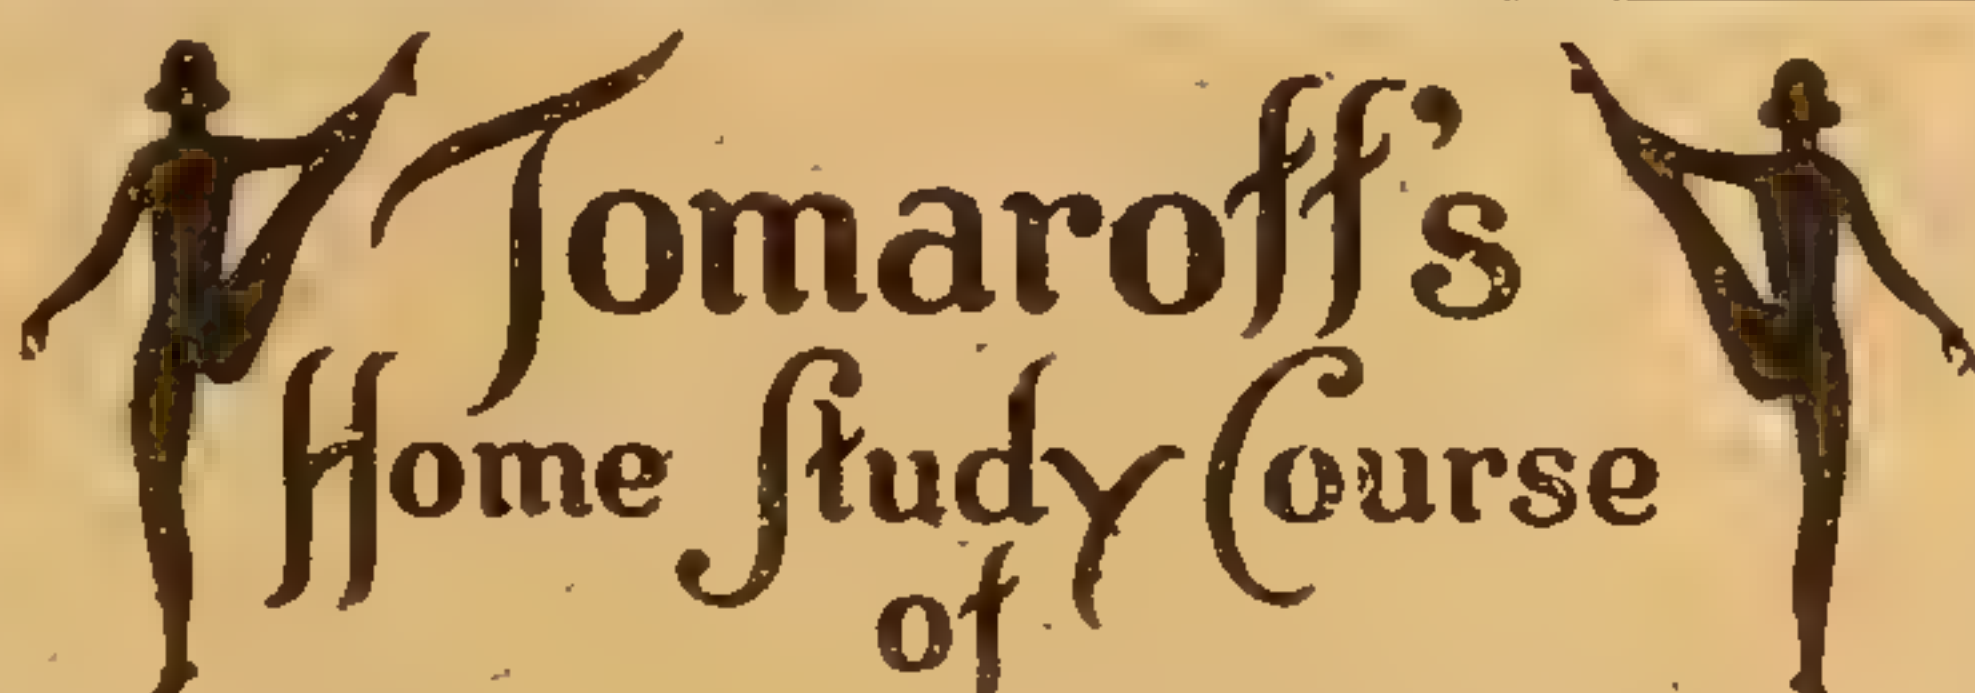 Tomaroff's
Home Study Course
of